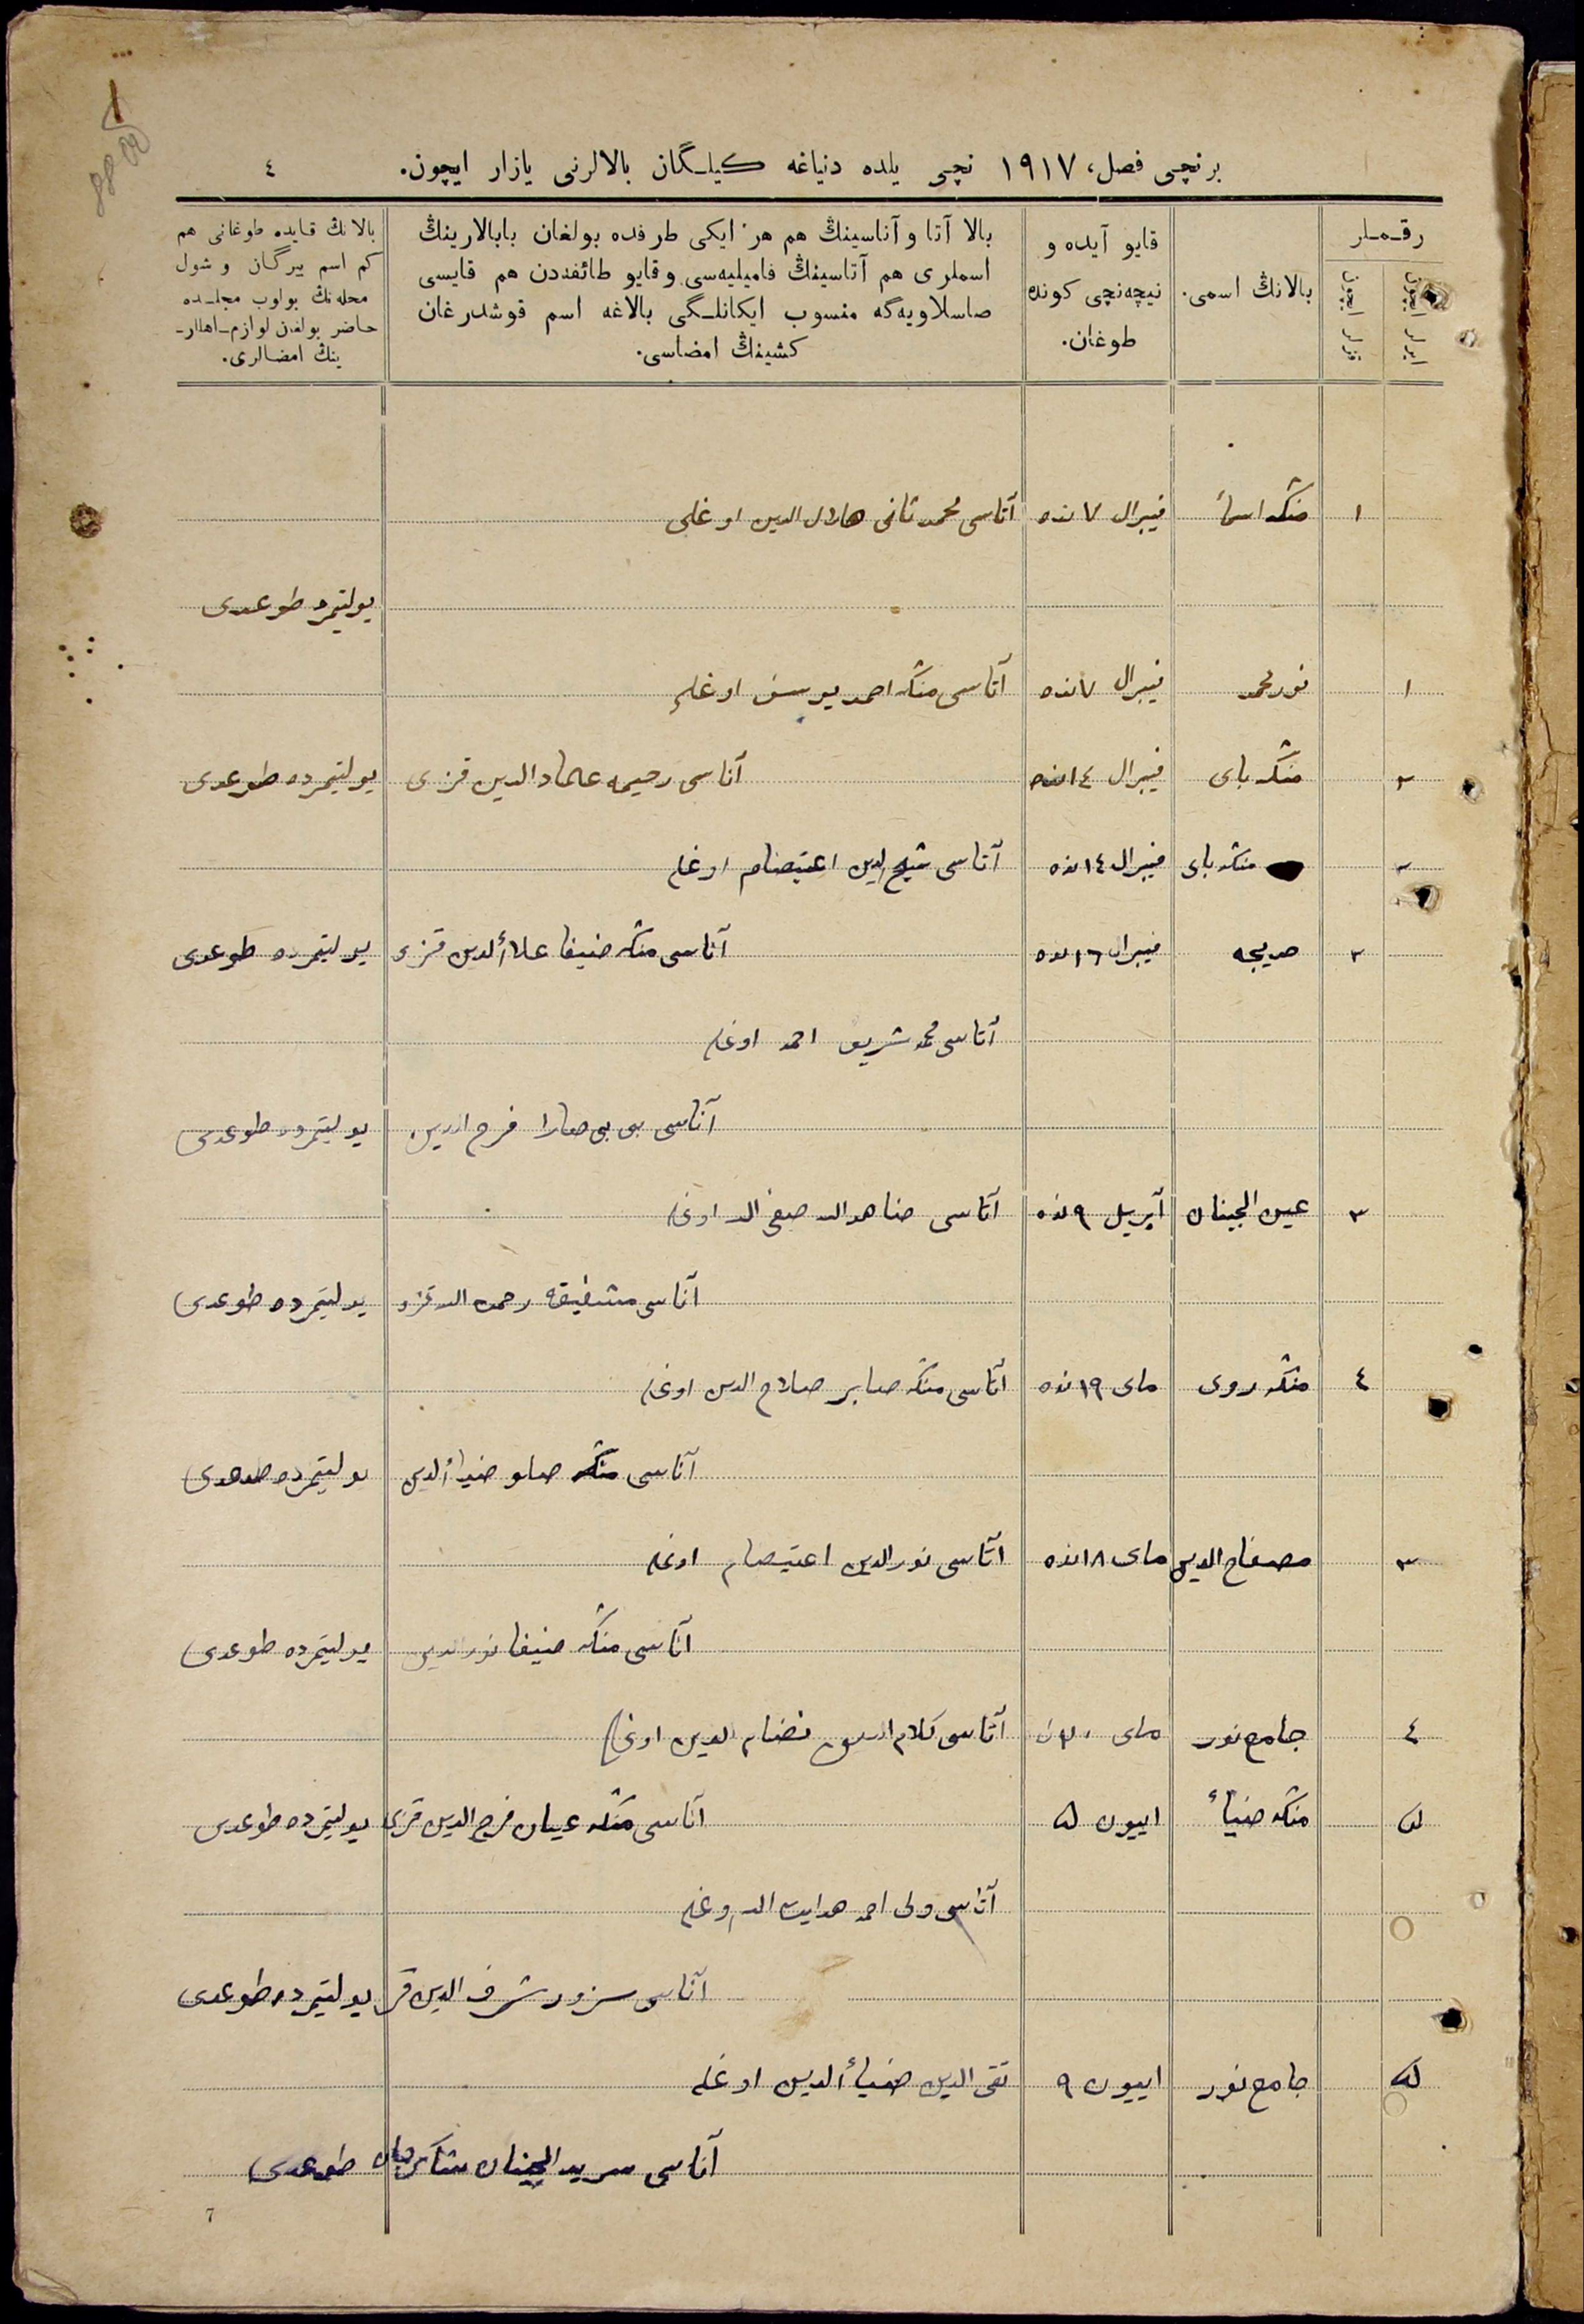 برنچی فصل، ١٩١٧ نچی یلده دنیاغه كیلـگان بالالرنی یازار ایچون. ٤
رقـمـلر
ایرلر ایچون
قزلر ایچون
بالانڭ اسمی.
قایو آیده و
نیچه‌نچی كونده
طوغان.
بالا آتا و آناسینڭ هم هر ایكی طرفده بولغان بابالارینڭ
اسملری هم آتاسینڭ فامیلیه‌سی وقایو طائفه‌دن هم قایسی
صاسلاویه‌گه منسوب ایكانلـگی بالاغه اسم قوشدرغان
كشینڭ امضاسی.
بالانڭ قایده طوغانی هم
كم اسم بیرگان و شول
محله‌نڭ بولوب مجلـده
حاضر بولغن لوازم‌ـاهللر‌ـ
ینڭ امضالری.
١ منڭه اسمأ فیبرال ٧ نده آتاسی محمد ثانی هلال الدین اوغلی
یولتیمرده طوعدی
١ نورمحمد فیبرال ٧نده آتاسی منڭه احمد یوسف اوغلی
٢ منڭه بای فیبرال ١٤نده آناسی رحیمه عماد الدین قزی یولتیمرده طوعدی
٢ منڭه بای فیبرال ١٤نده آتاسی شیخ الدین اعتصام اوغلی
٢ فیبرال ١٦نده آناسی منڭه ضیفا علاأالدین قزی یولتیمرده طوعدی
آتاسی محمد شریف احمد اوغلی
آناسی بی بی صارا یولتیمرده طوعدی
٣ عین الجنان آپریل ٩نده آتاسی اوغلی
آناسی مشفیقه رحمه الله قزی یولتیمرده طوعدی
٤ منڭه روی مای ١٩نده آتاسی منڭه صابر صلاح الدین اوغلی
آناسی منڭه صلو ضیاأالدین یولتیمرده طوعدی
٣ مصفاح الدین مای ١٨نده آتاسی نورالدین اعتیصام اوغلی
آناسی منڭه ضیفا نورالدین یولتیمرده طوعدی
٤ جامع نور مای آتاسی كلام الدین نضام الدین اوغلی
٥ منڭه ضیأ اییون ٥ آناسی منڭه عیان فرح الدین قزی یولتیمرده طوعدی
آتاسی ولی احمد هدایت الله اوغلی
آناسی سرور شرف الدین قز یولتیمرده طوعدی
٥ جامع نور اییون ٩ تقی الدین ضیاأ الدین اوغلی
آناسی الجنان شاكرجان طوعدی
7